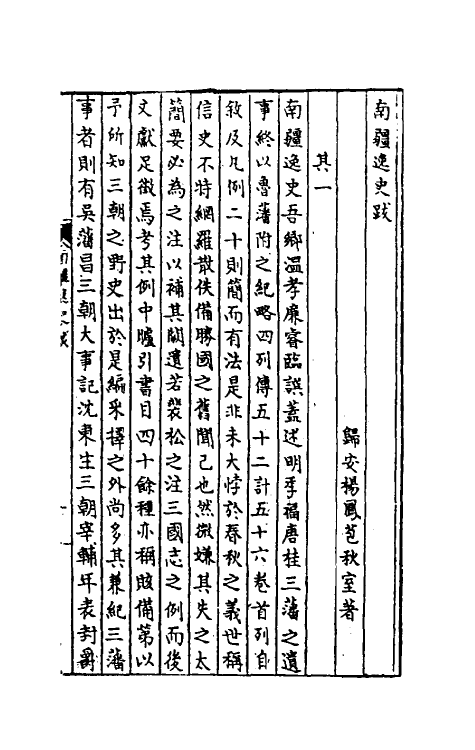 南疆逸史跋
歸安楊鳳苞秋室著
其一
南疆逸史吾鄉溫孝廉睿臨譔蓋述明季福唐桂三藩之遺
事終以魯藩附之紀略四列傳五十二計五十六卷首列自
敘及凡例二十則簡而有法是非未大悖於春秋之義世稱
信史不特網羅散佚備勝國之舊聞已也然微嫌其失之太
簡要必為之注以補其闕遺若裴松之注三國志之例而後
文獻足徵焉考其例中臚引書目四十餘種亦稱賅備第以
予所知三朝之野史出於是編采擇之外尚多其兼紀三藩
事者則有吳藩昌三朝大事記沈東生三朝宰輔年表封爵
南疆逸史跋
一